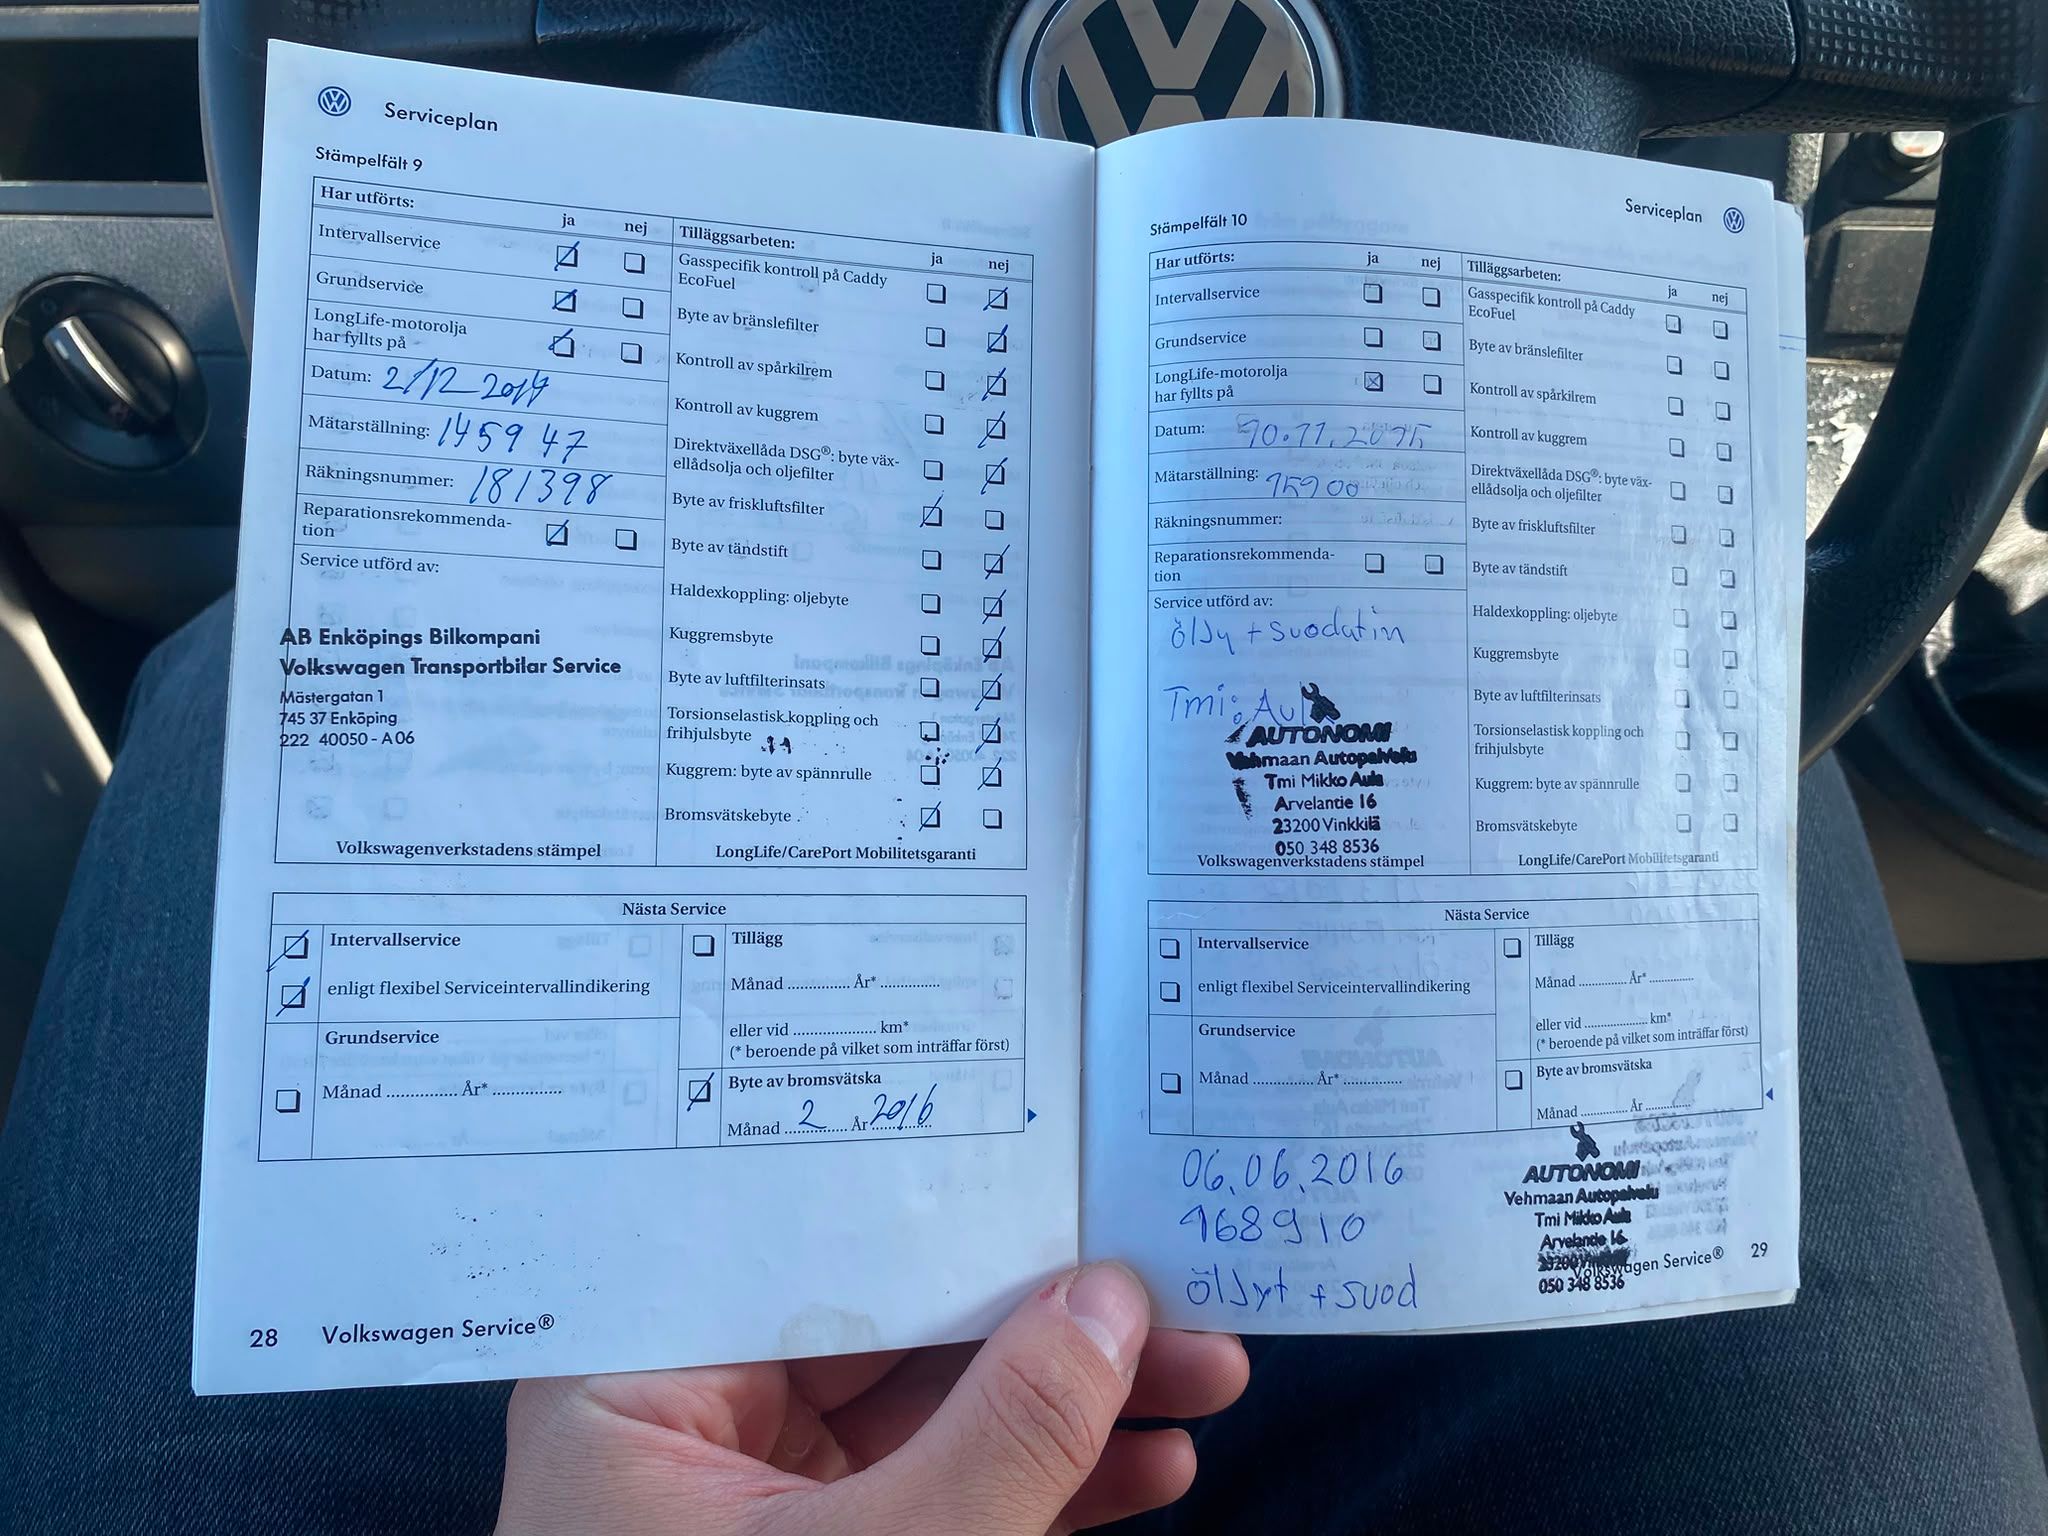 Serviceplan
Stämpelfält 9
Har utförts:
ja nej
Intervallservice
Grundservice
LongLife-motorolja
har fyllts på
Datum: 2/12 2014
Mätarställning: 145947
Räkningsnummer: 181398
Reparationsrekommenda-
tion
Service utförd av:
AB Enköpings Bilkompani
Volkswagen Transportbilar Service
Mästergatan 1
745 37 Enköping
222 40050 - A06
Volkswagenverkstadens stämpel
Tilläggsarbeten:
ja nej
Gasspecifik kontroll på Caddy
EcoFuel
Byte av bränslefilter
Kontroll av spårkilrem
Kontroll av kuggrem
Direktväxellåda DSG®: byte väx-
ellådsolja och oljefilter
Byte av friskluftsfilter
Byte av tändstift
Haldexkoppling: oljebyte
Kuggremsbyte
Byte av luftfilterinsats
Torsionselastisk koppling och
frihjulsbyte
Kuggrem: byte av spännrulle
Bromsvätskebyte
LongLife/CarePort Mobilitetsgaranti
Nästa Service
Intervallservice
enligt flexibel Serviceintervallindikering
Grundservice
Månad ............... År* ...............
Tillägg
Månad ............. År* .............
eller vid .................... km*
(* beroende på vilket som inträffar först)
Byte av bromsvätska
Månad 2 År 2016
28 Volkswagen Service®
Serviceplan
Stämpelfält 10
Har utförts:
ja nej
Intervallservice
Grundservice
LongLife-motorolja
har fyllts på
Datum: 10.11.2015
Mätarställning: 15900
Räkningsnummer:
Reparationsrekommenda-
tion
Service utförd av:
öljy + suodatin
Tmi: Aula
AUTONOMI
Vehmaan Autopalvelu
Tmi Mikko Aula
Arvelantie 16
23200 Vinkkilä
050 348 8536
Volkswagenverkstadens stämpel
Tilläggsarbeten:
ja nej
Gasspecifik kontroll på Caddy
EcoFuel
Byte av bränslefilter
Kontroll av spårkilrem
Kontroll av kuggrem
Direktväxellåda DSG®: byte väx-
ellådsolja och oljefilter
Byte av friskluftsfilter
Byte av tändstift
Haldexkoppling: oljebyte
Kuggremsbyte
Byte av luftfilterinsats
Torsionselastisk koppling och
frihjulsbyte
Kuggrem: byte av spännrulle
Bromsvätskebyte
LongLife/CarePort Mobilitetsgaranti
Nästa Service
Intervallservice
enligt flexibel Serviceintervallindikering
Grundservice
Månad ............... År* ...............
Tillägg
Månad ............. År* .............
eller vid .................... km*
(* beroende på vilket som inträffar först)
Byte av bromsvätska
Månad ............. År .............
06.06.2016
168910
öljyt + suod
AUTONOMI
Vehmaan Autopalvelu
Tmi Mikko Aula
Arvelantie 16
23200 Vinkkilä
050 348 8536
Volkswagen Service® 29